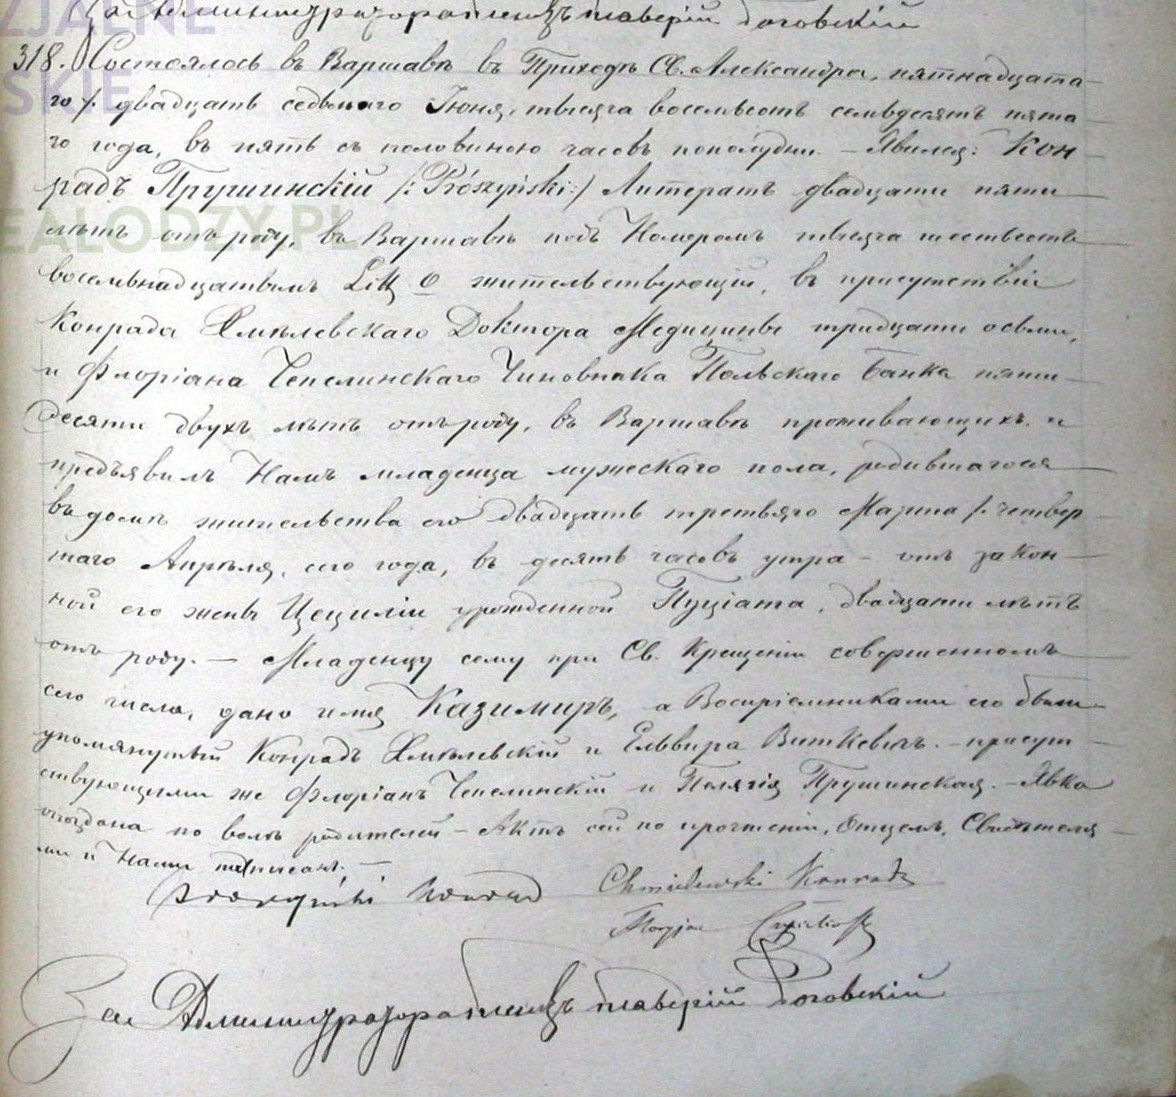 ZJALNE
SKIE
EALODZY.PL
За Администратора
318. Состоялось въ Варшавѣ въ Приходѣ Св. Александра, пятнадцата-
го /: двадцать седьмаго Іюня, тысяча восемьсотъ семьдесятъ пята-
го года, въ пять съ половиною часовъ пополудни. – Явился: Кон-
радъ Прушинскій /: Prószyński :/ Литератъ двадцати пяти
лѣтъ отъ роду, въ Варшавѣ подъ Номеромъ тысяча шестьсотъ
восемьнадцатымъ Litt O жительствующій, въ присутствіи
Конрада Хмѣлевскаго Доктора Медицины тридцати осьми,
и Флоріана Чепелинскаго Чиновника Польскаго Банка пяти-
десяти двухъ лѣтъ отъ роду, въ Варшавѣ проживающихъ и
предъявилъ Намъ младенца мужескаго пола, родившагося
въ домѣ жительства его двадцать третьяго Марта /: четвер-
таго Апрѣля, сего года, въ десять часовъ утра – отъ закон-
ной его жены Цециліи урожденной Пуціата, двадцати лѣтъ
отъ роду. – Младенцу сему при Св. Крещеніи совершенномъ
сего числа, дано имя Казимиръ, а Воспріемниками его были
упомянутый Конрадъ Хмѣлевскій и Ельвира Виткевичъ. – присут-
ствующими же Флоріанъ Чепелинскій и Пелягія Прушинская. – Явка
опоздана по волѣ родителей – Актъ сей по прочтеніи, Отцемъ, Свидѣтеля-
ми и Нами подписанъ. –
Prószyński Konrad Chmielewski Konrad
Floryjan
За Администратора